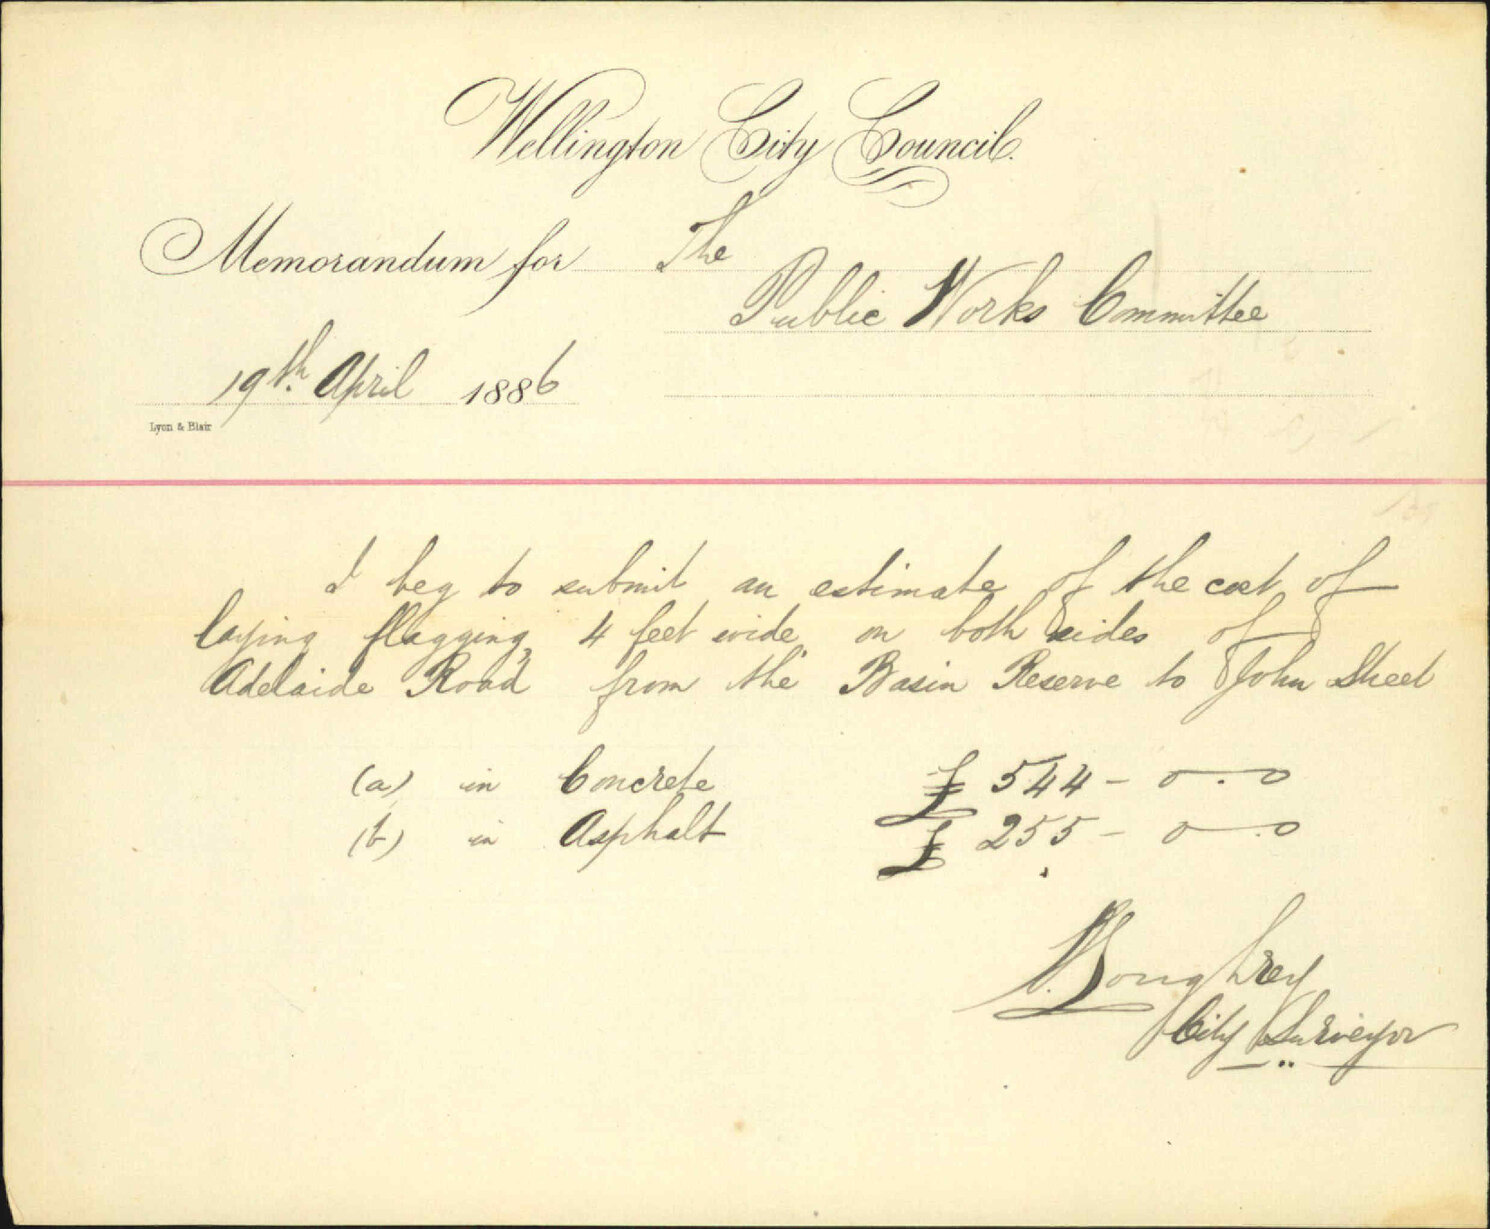 Wellington City Council.
Memorandum for The
Public Works Committee
19th. April 1886
Lyon & Blair
I beg to submit an estimate of the cost of
laying flagging, 4 feet wide, on both sides of
Adelaide Road from the Basin Reserve to John Street
(a) in Concrete £ 544 - 0 . 0
(b) in Asphalt £ 255 - 0 . 0
Loughrey
City Surveyor